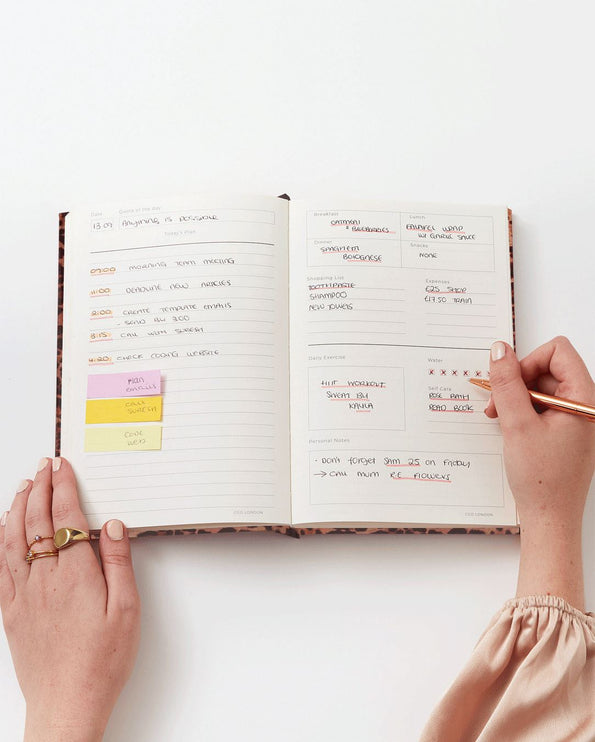 Date
Quote of the day
13.09
ANYTHING IS POSSIBLE
Today's Plan
09:00 MORNING TEAM MEETING
11:00 DEADLINE NEW ARTICLES
2:00 CREATE TEMPLATE EMAILS
- SEND BY 3:00
3:15 CALL WITH SURESH
4:30 CHECK CODING WEBSITE
PLAN
EMAILS
CALL
SURESH
CODE
WEB
Breakfast
OATMEAL
& BLUEBERRIES
Lunch
FALAFEL WRAP
W/ GARLIC SAUCE
Dinner
SPAGHETTI
BOLOGNESE
Snacks
NONE
Shopping List
TOOTHPASTE
SHAMPOO
NEW TOWELS
Expenses
£25 SHOP
£17.50 TRAIN
Daily Exercise
HIIT WORKOUT
KAYLA
Water
x x x x x x
Self Care
ROSE BATH
READ BOOK
Personal Notes
• DON'T FORGET SAM 25 ON FRIDAY
→ CALL MUM RE FLOWERS
CGD LONDON
CGD LONDON